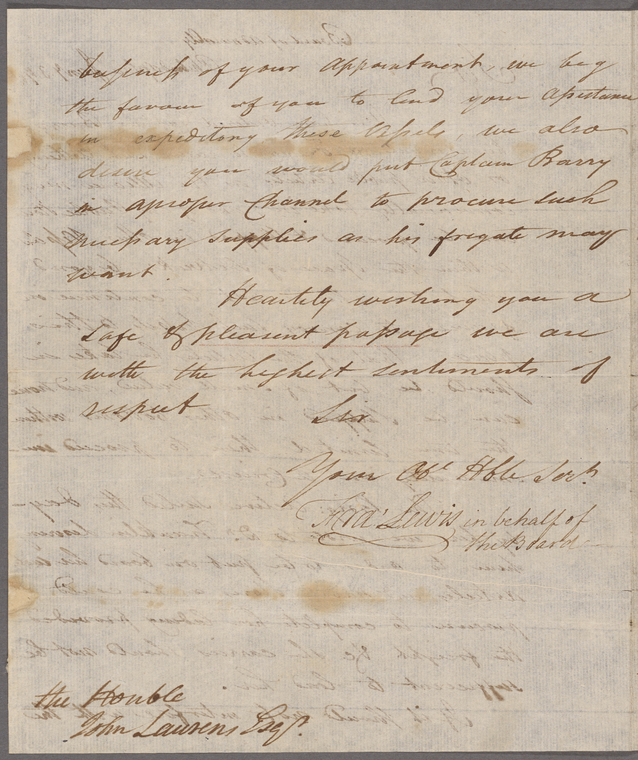 business of your appointment, we beg
the favour of you to lend your assistance
in expediting these Vessels, we also
desire you would put Captain Barry
in aproper Channel to procure such
necessary supplies as his frigate may
want.
Heartily wishing you a
safe & pleasent passage we are
with the highest sentiments of
respect Sir
Your Obt Hble Servts
Fras Lewis in behalf of
the Board
the Honble
John Laurens Esqr.